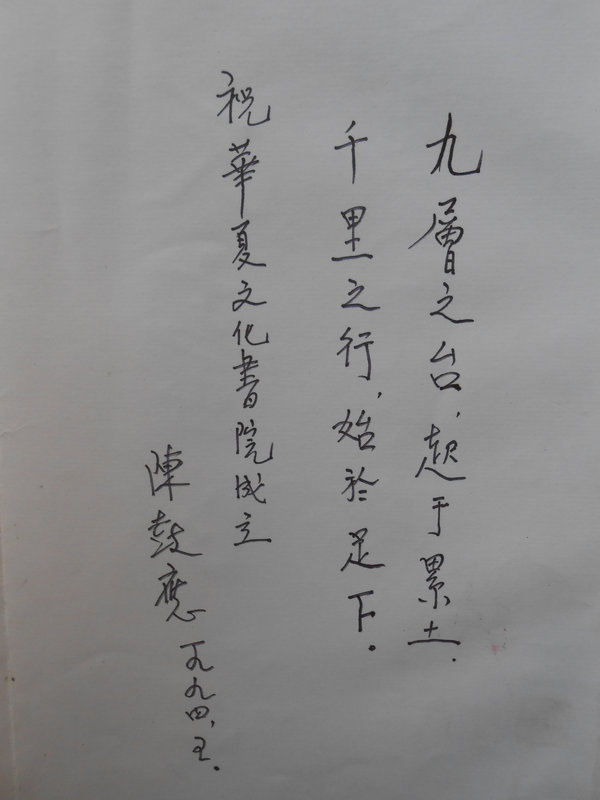 九層之台，起于累土．
千里之行，始於足下．
祝華夏文化書院成立
陳鼓應 一九九四．五．